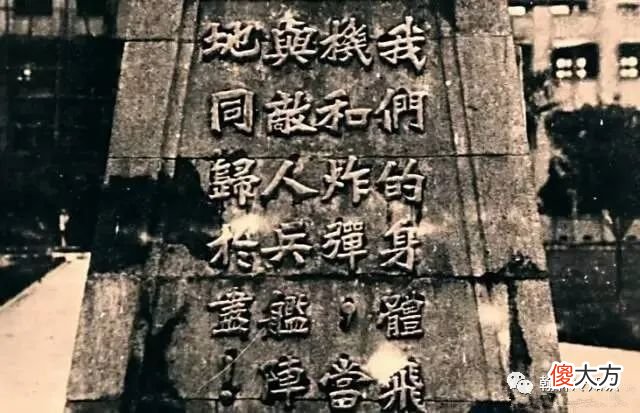 我們的身體飛
機和炸彈，當
與敵人兵艦陣
地同歸於盡！
傻大方